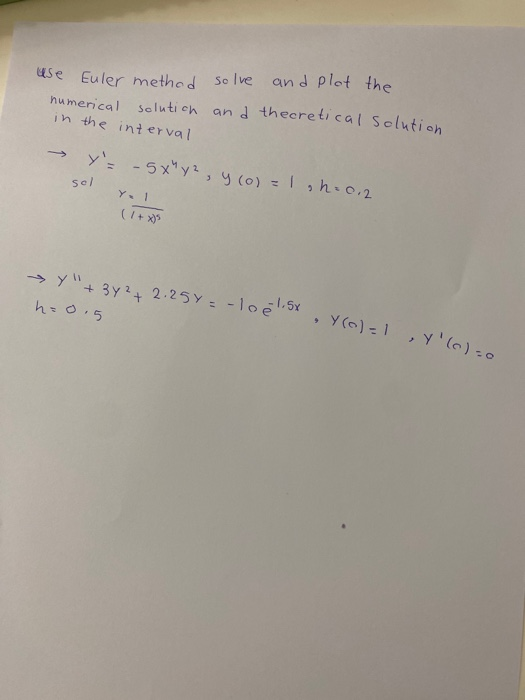 use Euler method solve and plot the
numerical solution and theoretical solution
in the interval
→ y' = - 5x⁴y², y(0) = 1, h = 0.2
sol
y = 1
(1+x)⁵
→ y'' + 3y² + 2.25y = -10e^-1.5x, y(0) = 1, y'(0) = 0
h = 0.5